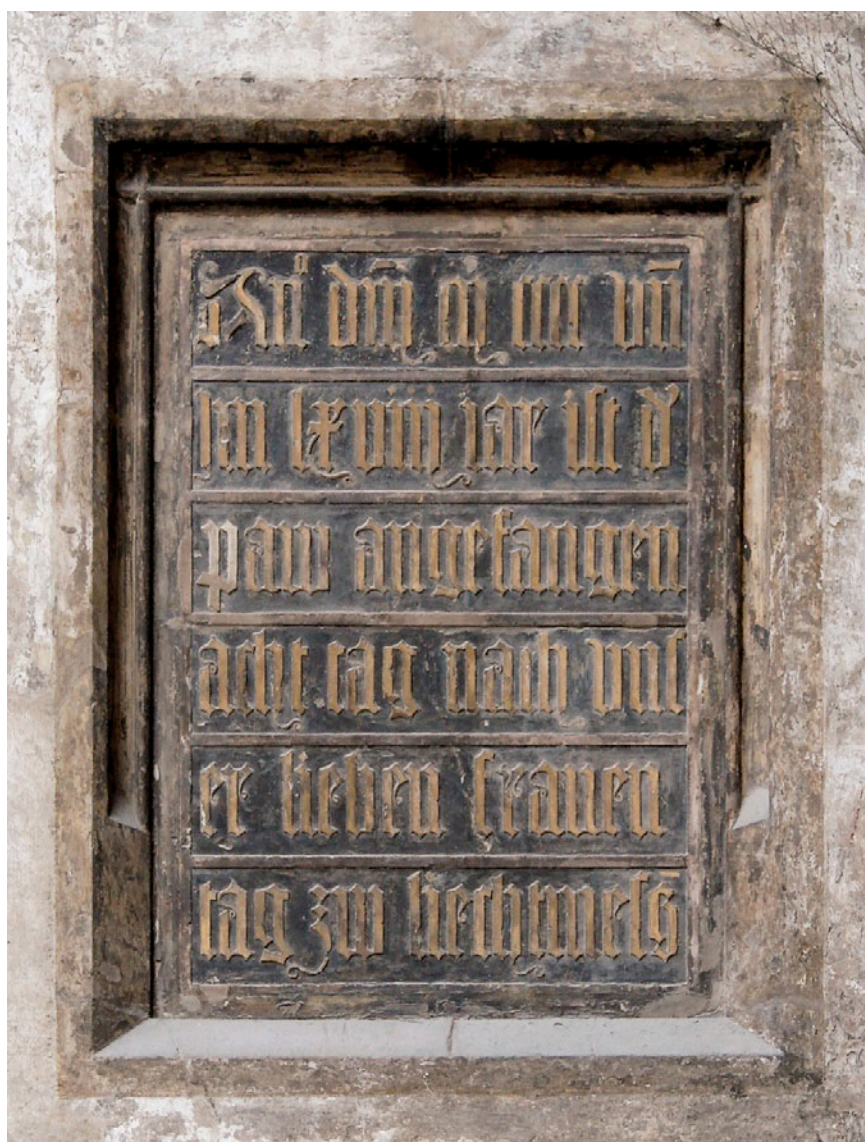 An° dm̄ m cccc vn̄
Im lxviij jar ist d'
paw angefangen
acht tag nach vns
er lieben frauen
tag zw liechtmess